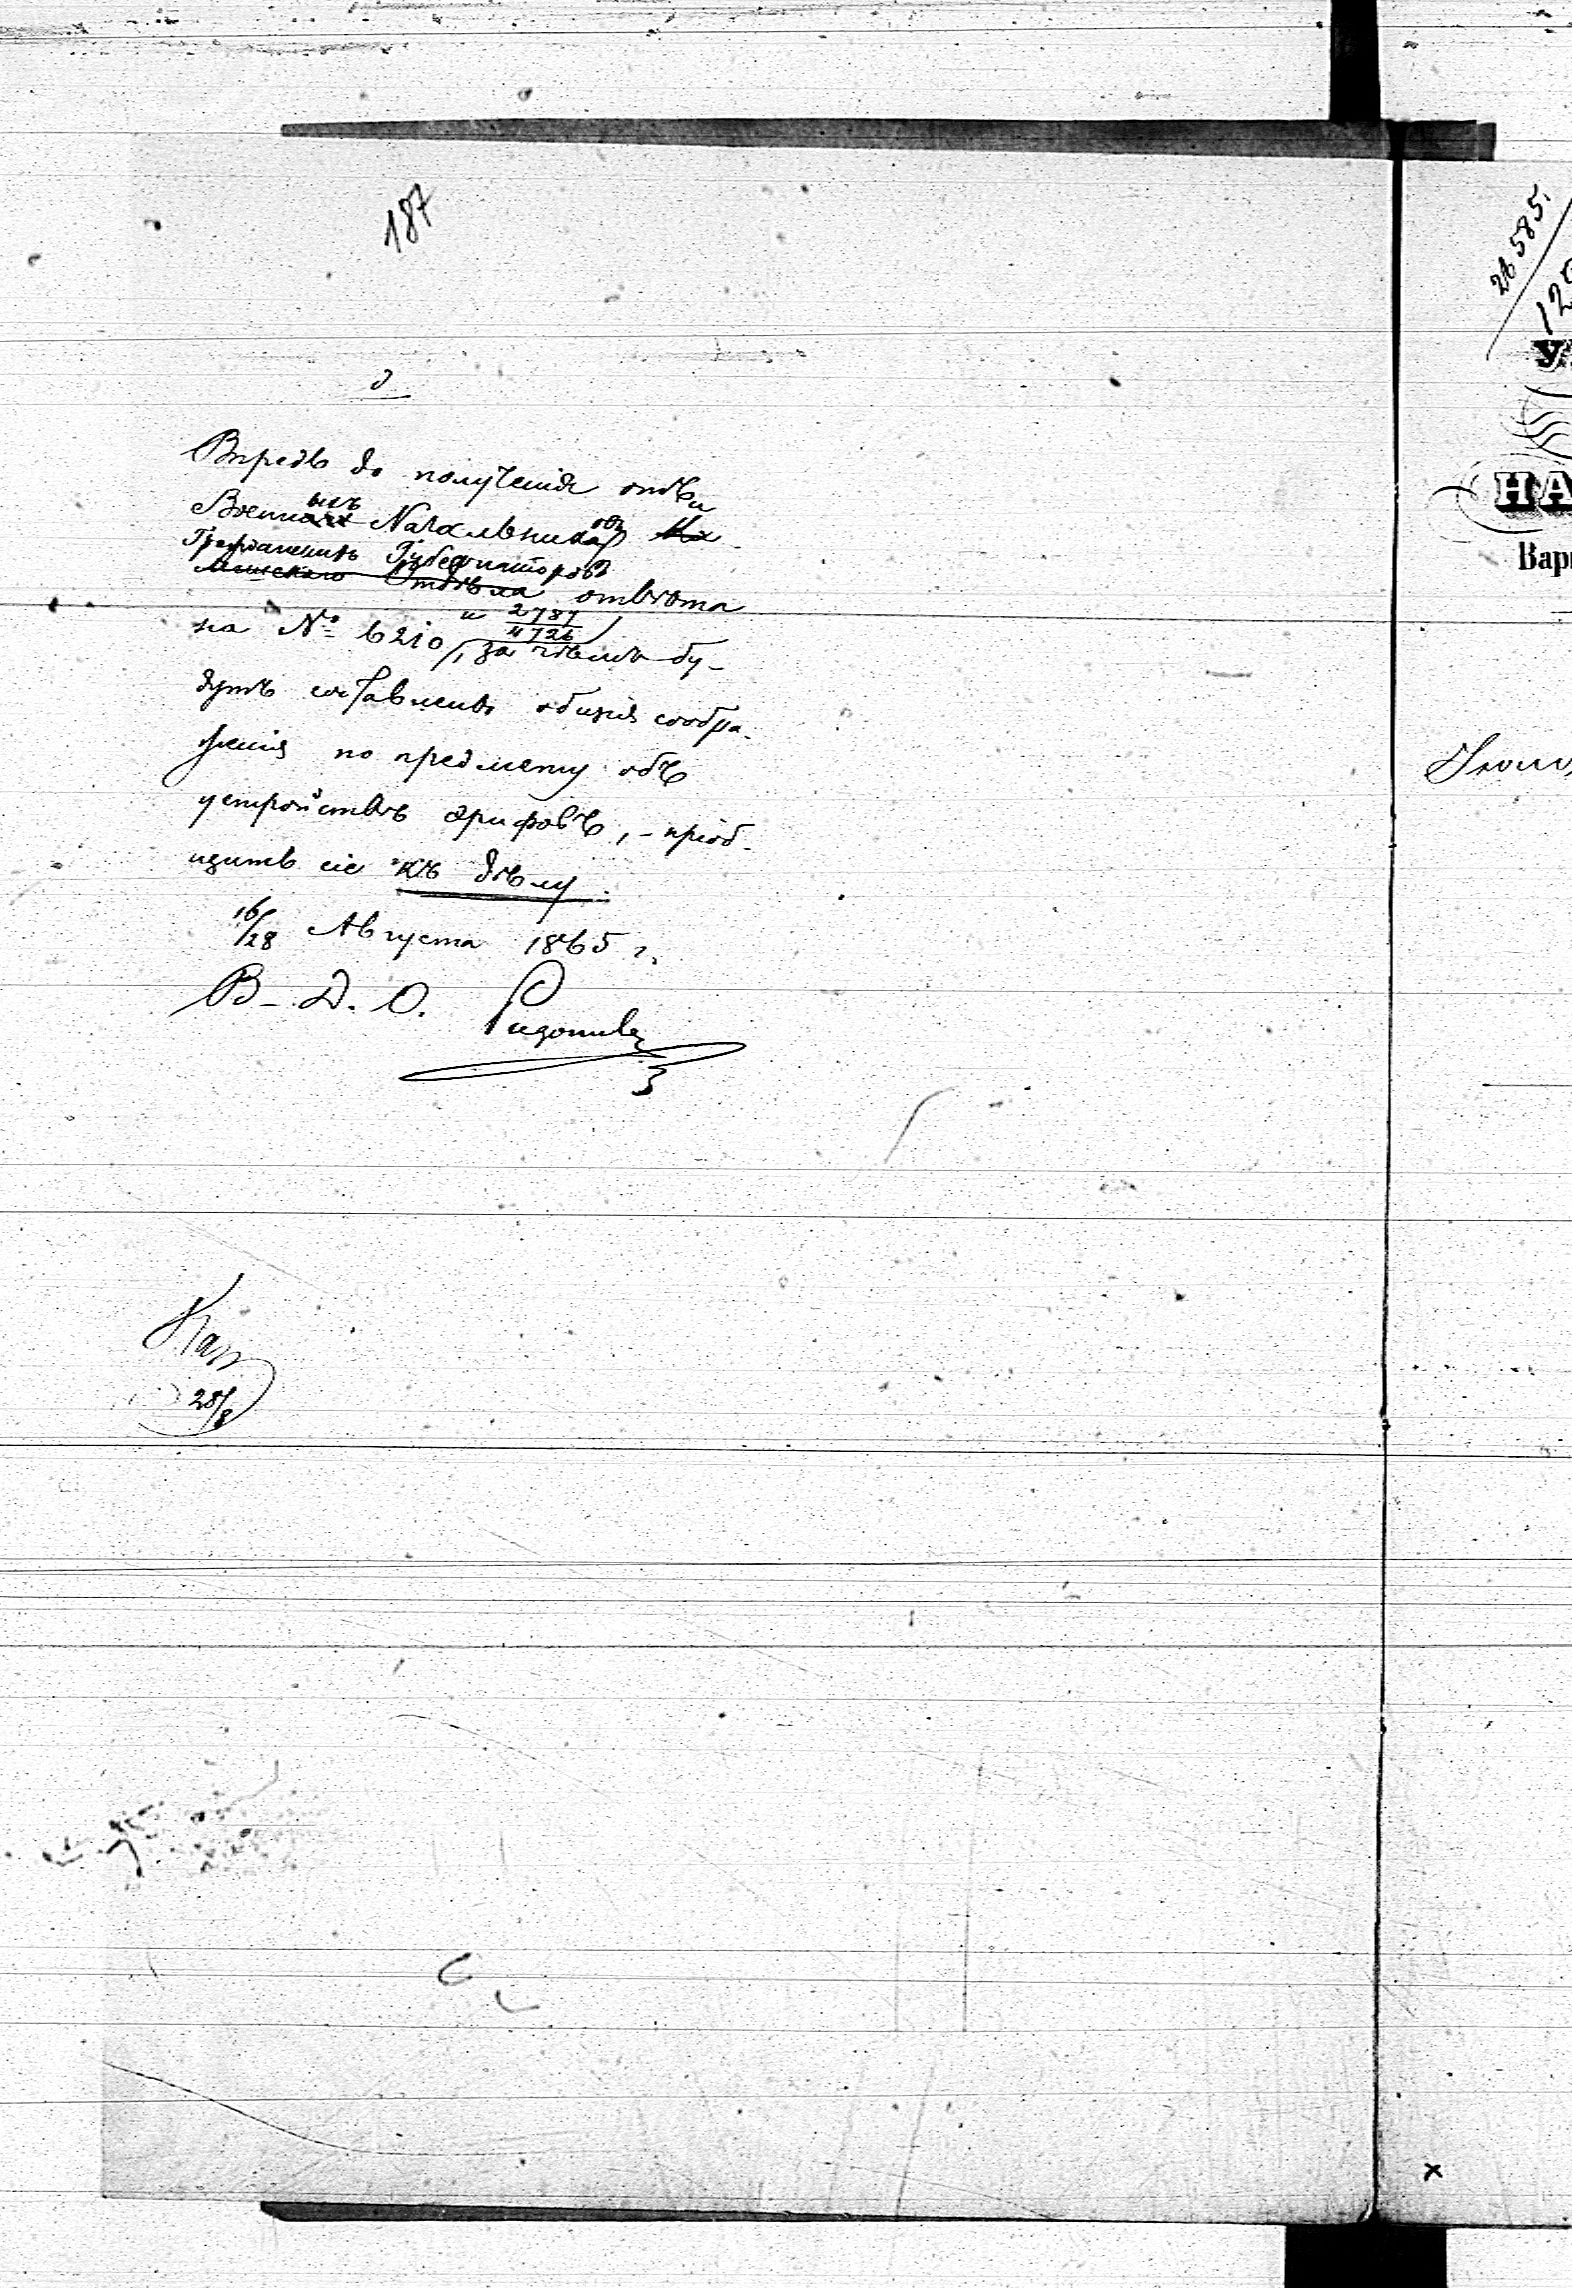 187
Впредь до получения отъ
Военныхъ Начальниковъ и
Гражданскихъ Губернаторовъ
Отдѣла отвѣта
на № 6210 и 2787/4726, за чѣмъ бу-
дутъ составлены общія сообра-
женія по предмету объ
устройствѣ арифовъ, - пріоб-
щить сіе къ дѣлу.
16/28 Августа 1865 г.
В. Д. О.
28/8
26585.
НА
Вар